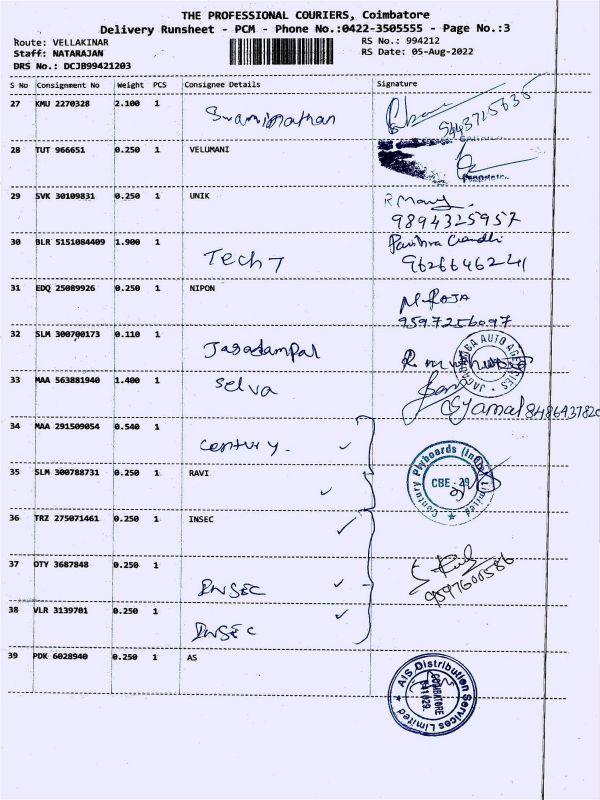 THE PROFESSIONAL COURIERS, Coimbatore
Delivery Runsheet - PCM - Phone No.:0422-3505555 - Page No.:3
Route: VELLAKINAR
RS No.: 994212
Staff: NATARAJAN
RS Date: 05-Aug-2022
DRS No.: DCJB99421203
S No Consignment No Weight PCS Consignee Details Signature
27 KMU 2270328 2.100 1 Swaminathan
28 TUT 966651 0.250 1 VELUMANI
29 SVK 30109831 0.250 1 UNIK
9894325957
30 BLR 5151084409 1.900 1 Tech 7
9626646241
31 EDQ 25089926 0.250 1 NIPON M. RAJA
9597256097
32 SLM 300700173 0.110 1
JAGADAMBA AUTO AGENCIES
33 MAA 563881940 1.400 1 Selva
Syamal
34 MAA 291509054 0.540 1 Century.
Century Plyboards (India) Limited
CBE - 29
35 SLM 300788731 0.250 1 RAVI
36 TRZ 275071461 0.250 1 INSEC
37 OTY 3687848 0.250 1 INSEC
9597600586
38 VLR 3139701 0.250 1 INSEC
39 PDK 6028940 0.250 1 AS
AIS Distribution Services Limited
COIMBATORE
641029.